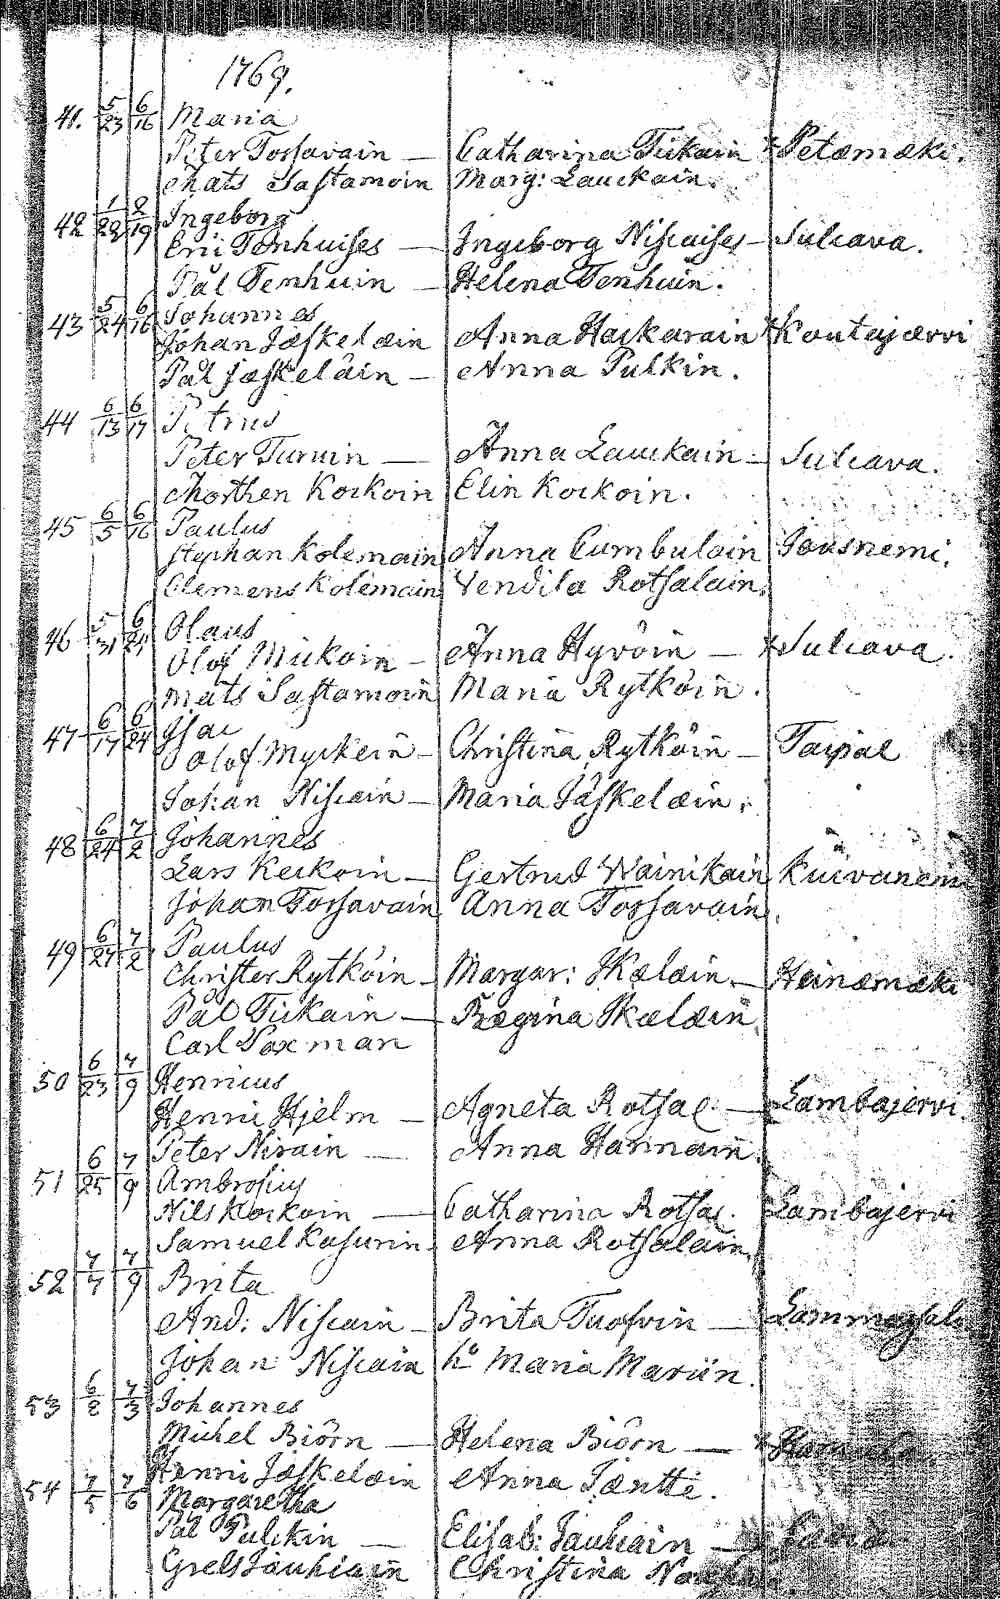 1769.
41. 5/23 6/16 Maria
Peter Torsavain — Catharina Tickain Petæmæki.
Mats Sastamoin Marg: Lauckain.
42 1/22 2/19 Ingeborg
Eric Tenhuises — Ingeborg Niscaises — Sulcava.
Pål Tenhuin — Helena Tenhuin.
43 5/24 6/16 Johannes
Johan Jæskelæin Anna Hackarain Koutajærvi
Pål Jæskeläin — Anna Pulkin.
44 6/13 6/17 Petrus
Peter Turuin — Anna Lauckain — Sulcava.
Morthen Kockoin Elin Kockoin.
45 6/5 6/16 Paulus
Stephan Kolemain Anna Cumbulain Jousnemi.
Clemens Kolemain Vendila Rotsalain.
46 5/31 6/24 Olaus
Olof Mickoin — Anna Hyvöin — Sulcava.
Mats Sastamoin Maria Rytköin.
47 6/17 6/24 Isac
Olof Myckein — Christina Rytköin — Taipal
Johan Niscain — Maria Jäskelæin.
48 6/24 7/2 Johannes
Lars Keckoin — Gertrud Wainikain Kuivanemi
Johan Torsavain Anna Torsavain.
49 6/27 7/2 Paulus
Christer Rytköin — Margar: Ikælæin — Heinæmæki
Pål Tickain — Regina Ikælæin
Carl Poxman
50 6/23 7/9 Henricus
Henric Hjelm — Agneta Rotsal. — Lambajervi.
Peter Nirain — Anna Hannain.
51 6/25 7/9 Ambrosius
Nils Kockoin — Catharina Rotsal. Lambajervi
Samuel Kasurin — Anna Rotsalain.
52 7/7 7/9 Brita
And: Niscain — Brita Tuofvin — Lammassalo
Johan Niscain h:o Maria Mariin.
53 6/2 7/3 Johannes
Michel Biörn — Helena Biörn —
Henric Jæskelæin Anna Jæntti.
54 7/5 7/6 Margaretha
Pål Pulckin — Elisab: Jauhiain —
Grels Jauhiain Christina